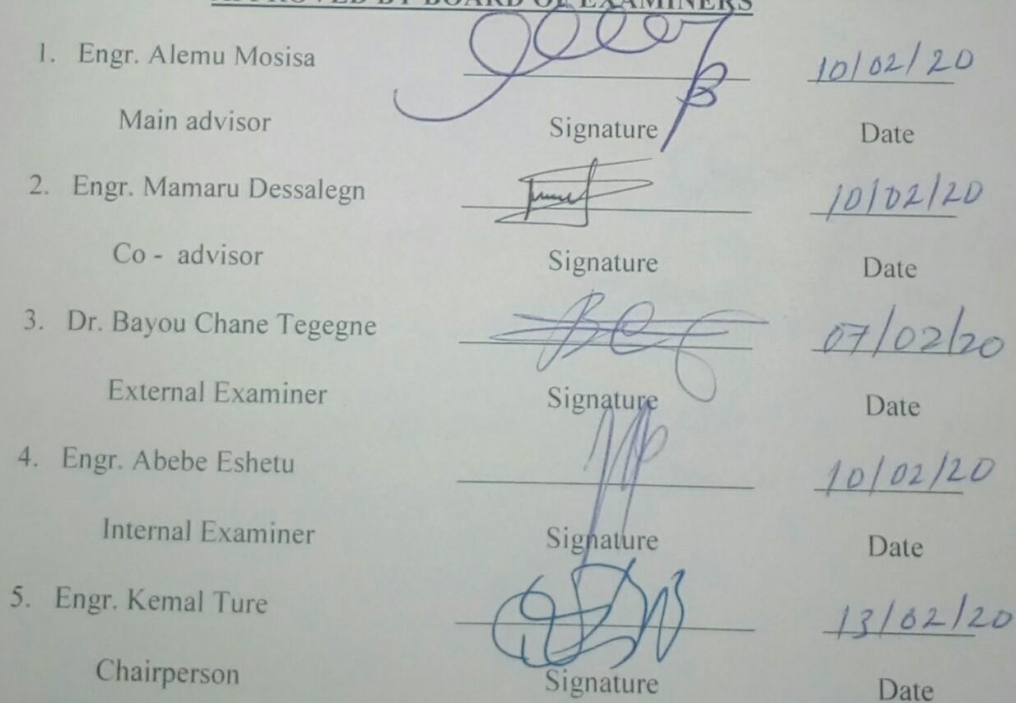 APPROVED BY BOARD OF EXAMINERS
1. Engr. Alemu Mosisa 10/02/20
Main advisor Signature Date
2. Engr. Mamaru Dessalegn 10/02/20
Co - advisor Signature Date
3. Dr. Bayou Chane Tegegne 07/02/20
External Examiner Signature Date
4. Engr. Abebe Eshetu 10/02/20
Internal Examiner Signature Date
5. Engr. Kemal Ture 13/02/20
Chairperson Signature Date